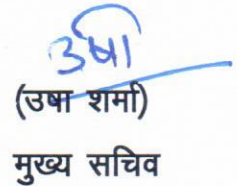 उषा
(उषा शर्मा)
मुख्य सचिव